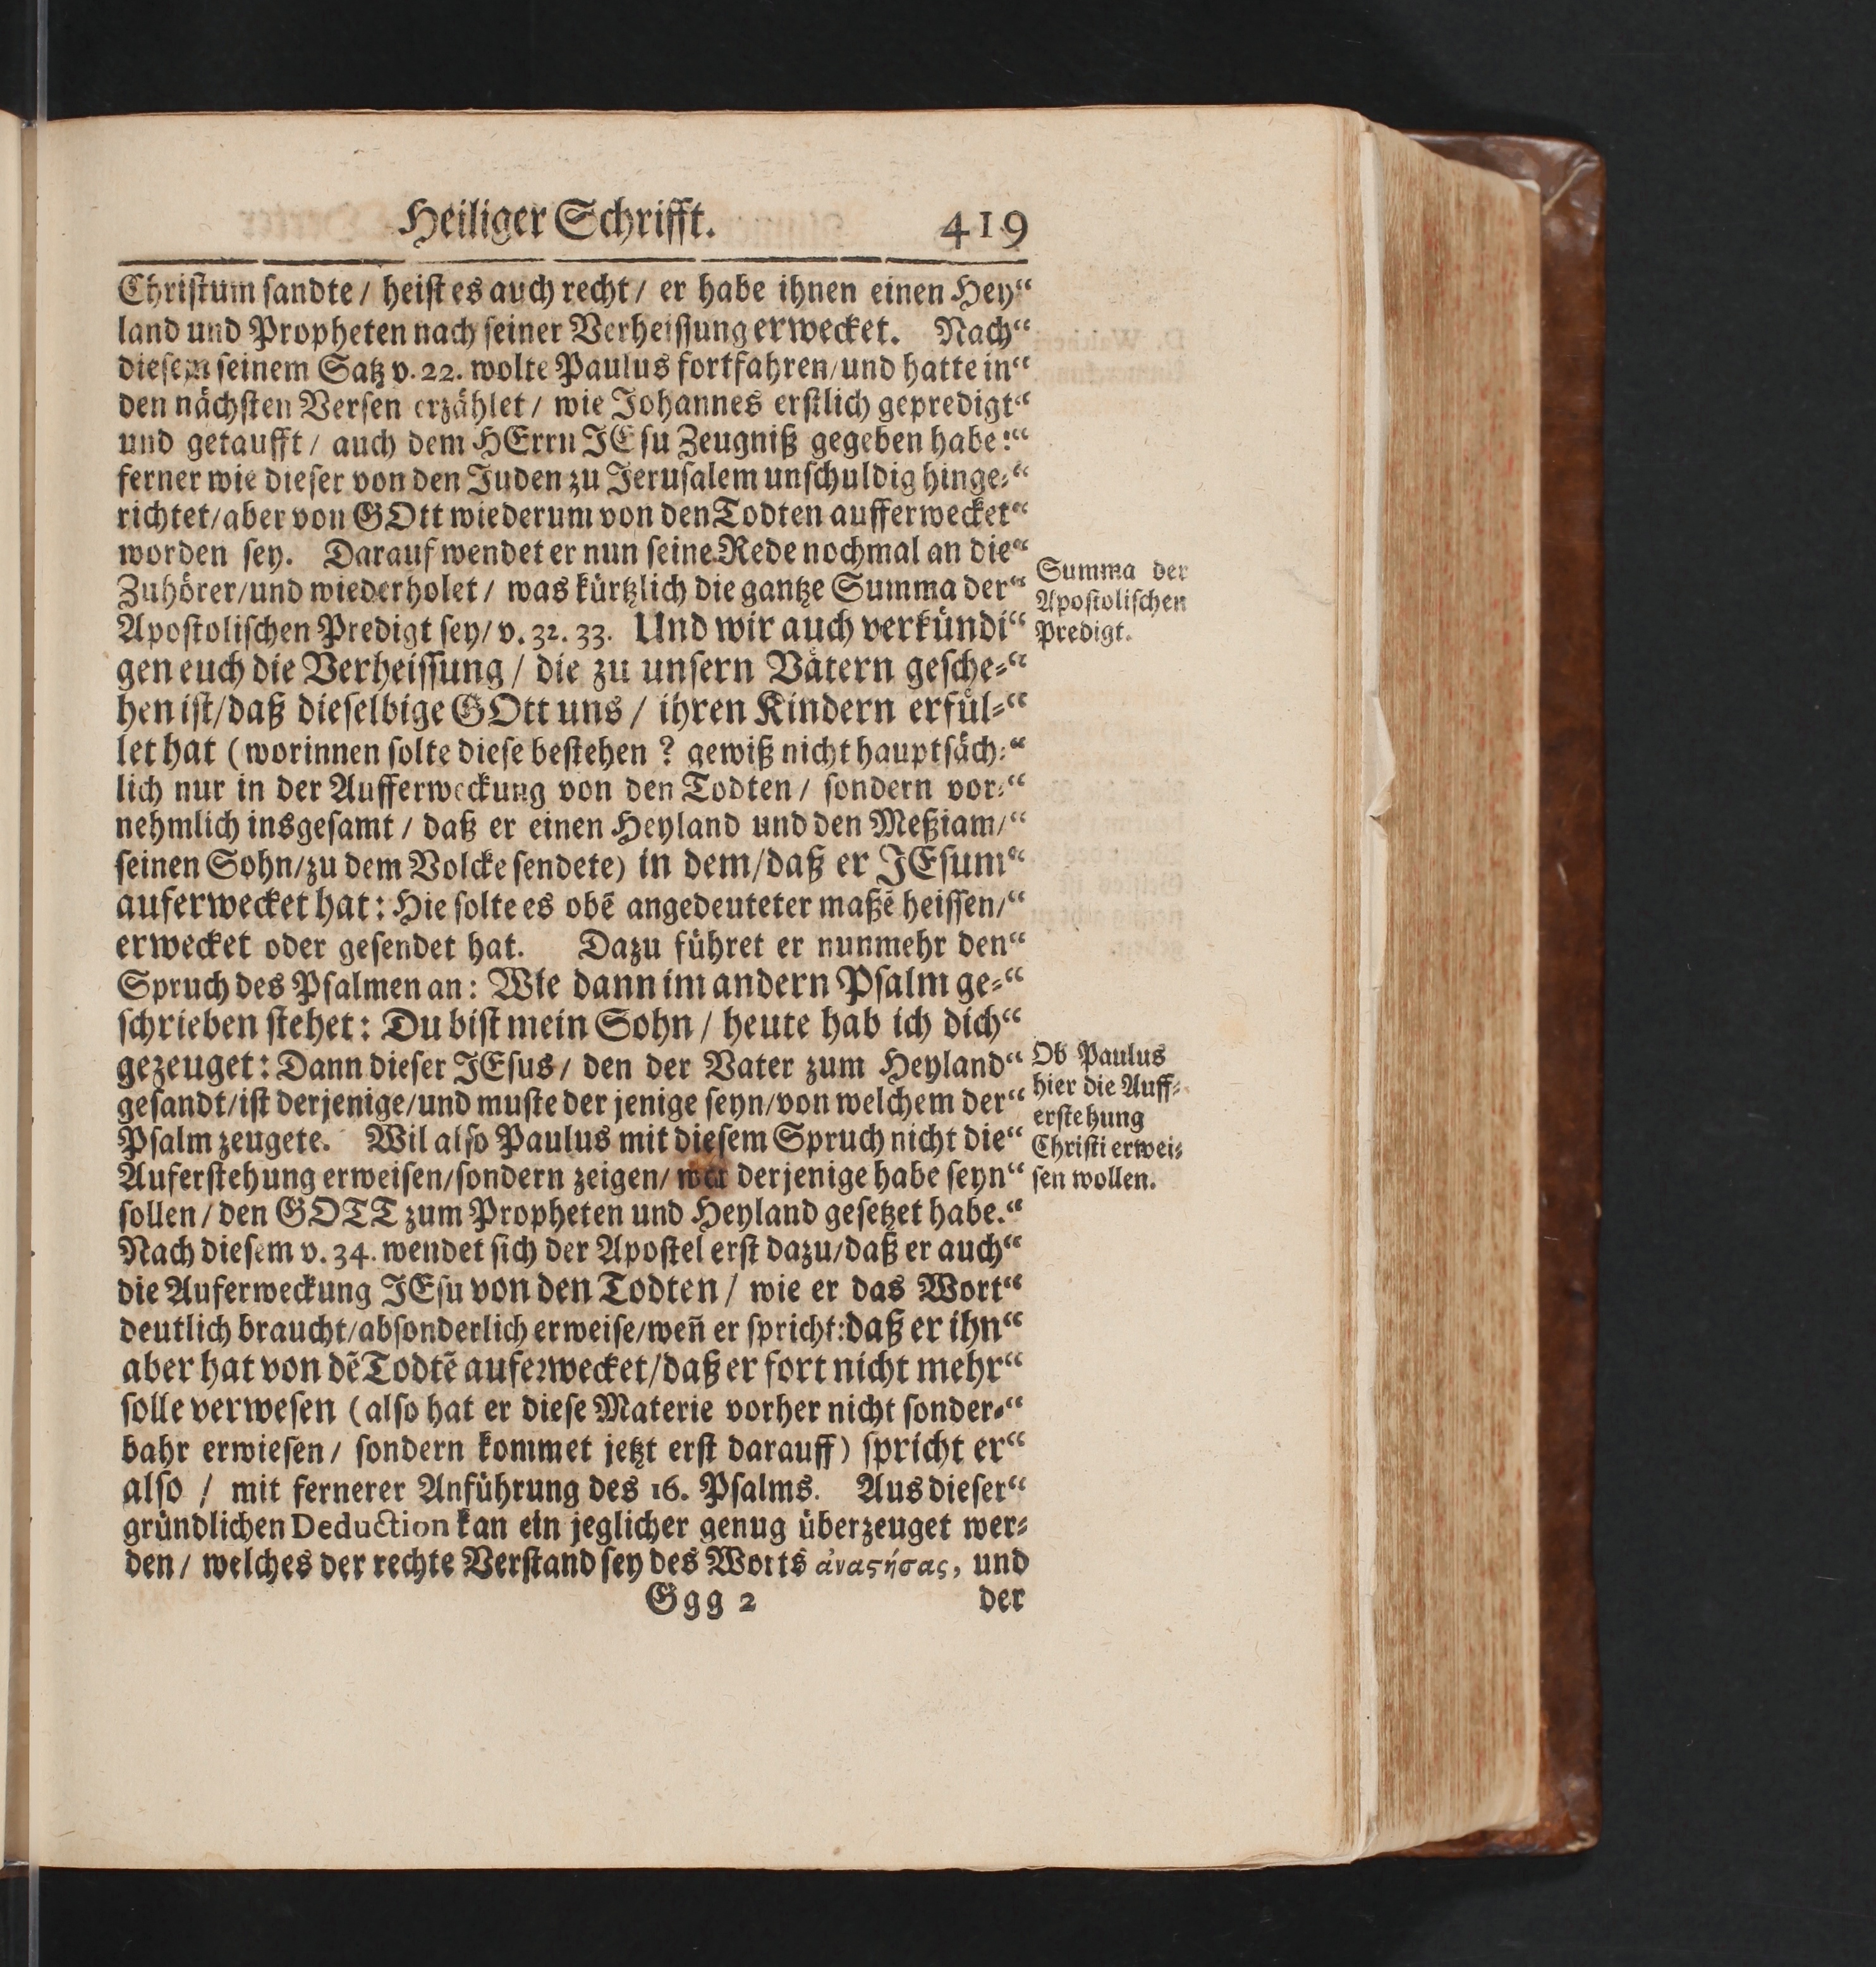 Heiliger Schrifft. 419
Christum sandte / heist es auch recht / er habe ihnen einen Hey“
land und Propheten nach seiner Verheissung erwecket. Nach“
diesem seinem Satz v. 22. wolte Paulus fortfahren/und hatte in“
den nächsten Versen erzählet / wie Johannes erstlich gepredigt“
und getaufft / auch dem HErrn JEsu Zeugniß gegeben habe:“
ferner wie dieser von den Juden zu Jerusalem unschuldig hinge⸗“
richtet/aber von GOtt wiederum von den Todten aufferwecket“
worden sey. Darauf wendet er nun seine Rede nochmal an die“
Zuhörer/und wiederholet / was kürtzlich die gantze Summa der“
Apostolischen Predigt sey/ v. 32. 33. Und wir auch verkündi“
Summa der
Apostolischen
Predigt.
gen euch die Verheissung / die zu unsern Vätern gesche⸗“
hen ist/daß dieselbige GOtt uns / ihren Kindern erfül⸗“
let hat (worinnen solte diese bestehen ? gewiß nicht hauptsäch⸗“
lich nur in der Aufferweckung von den Todten / sondern vor⸗“
nehmlich insgesamt / daß er einen Heyland und den Meßiam/“
seinen Sohn/zu dem Volcke sendete) in dem/daß er JEsum“
auferwecket hat: Hie solte es obẽ angedeuteter maßẽ heissen/“
erwecket oder gesendet hat. Dazu führet er nunmehr den“
Spruch des Psalmen an: Wie dann im andern Psalm ge⸗“
schrieben stehet: Du bist mein Sohn / heute hab ich dich“
gezeuget: Dann dieser JEsus / den der Vater zum Heyland“
gesandt/ist derjenige/und muste der jenige seyn/von welchem der“
Psalm zeugete. Wil also Paulus mit diesem Spruch nicht die“
Auferstehung erweisen/sondern zeigen/ wer derjenige habe seyn“
Ob Paulus
hier die Auff⸗
erstehung
Christi erwei⸗
sen wollen.
sollen / den GOTT zum Propheten und Heyland gesetzet habe.“
Nach diesem v. 34. wendet sich der Apostel erst dazu/daß er auch“
die Auferweckung JEsu von den Todten / wie er das Wort“
deutlich braucht/absonderlich erweise/weñ er spricht:daß er ihn“
aber hat von dẽ Todtẽ auferwecket/daß er fort nicht mehr“
solle verwesen (also hat er diese Materie vorher nicht sonder⸗“
bahr erwiesen / sondern kommet jetzt erst darauff) spricht er“
also / mit fernerer Anführung des 16. Psalms. Aus dieser“
gründlichen Deduction kan ein jeglicher genug überzeuget wer⸗
den / welches der rechte Verstand sey des Worts ἀναςήσας, und
Ggg 2 der